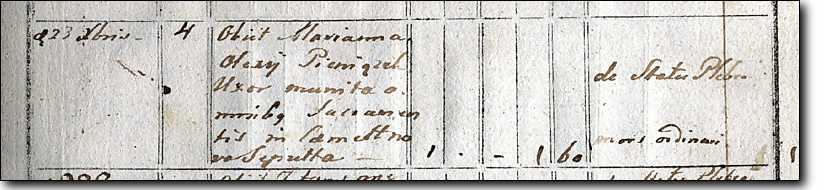 d 23 Xbris - 4 Obiit Marianna
Olexij Pieniązek
Uxor munita o-
mnibq Sacramen
tis in Caemet no
vo Sepulta — 1 . - 1 60
de Statu Plebeo
mors ordinari